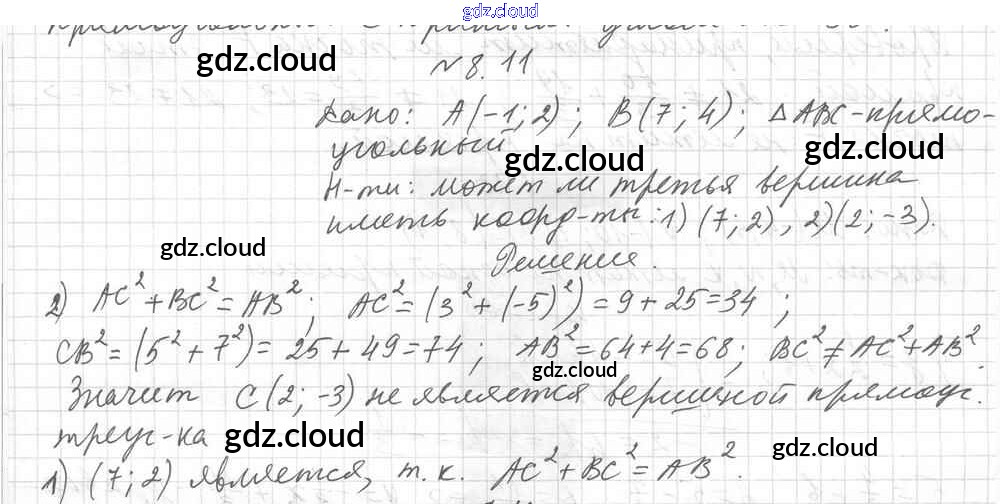 gdz.cloud
gdz.cloud
N 8.11
Дано: A(-1; 2); B(7; 4); △ABC-прямо-
угольный
gdz.cloud
gdz.cloud
Н-ти: может ли третья вершина
иметь коорд-ты: 1) (7; 2), 2)(2; -3).
gdz.cloud
Решение.
2) AC² + BC² = AB²; AC² = (3² + (-5)²) = 9 + 25 = 34;
CB² = (5² + 7²) = 25 + 49 = 74; AB² = 64 + 4 = 68; BC² ≠ AC² + AB².
gdz.cloud
Значит C(2; -3) не является вершиной прямоуг.
треуг-ка
gdz.cloud
gdz.cloud
1) (7; 2) является, т.к. AC² + BC² = AB².
gdz.cloud